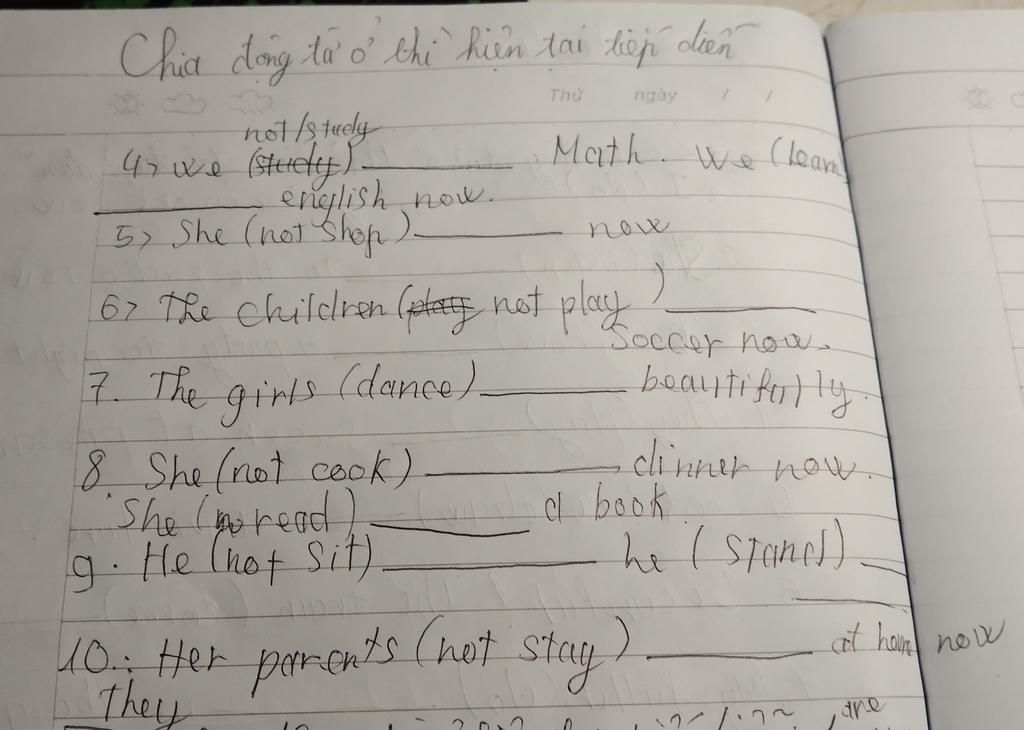 Chia động từ ở thì hiện tại tiếp diễn
Thứ ngày / /
not/study
4> we (study) ________ Math. We (learn)
________ english now.
5> She (not shop) ________ now
6> The children (play not play) ________
Soccer now.
7. The girls (dance) ________ beautifully.
8. She (not cook) ________ dinner now.
She (read) ________ a book.
9. He (not sit) ________ he (stand) ________
10.: Her parents (not stay) ________ at home now
They
are